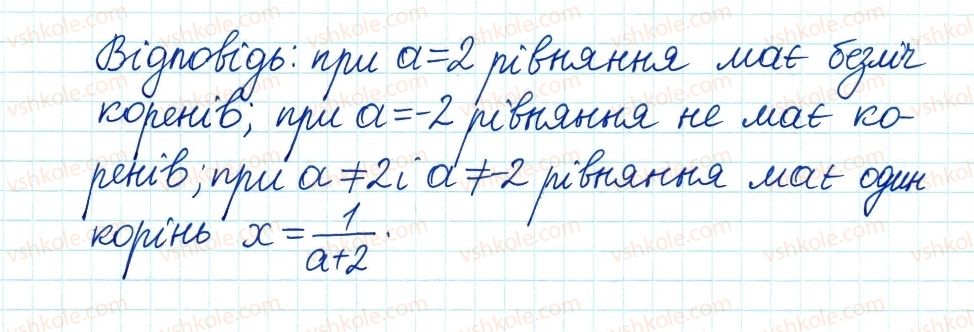 Відповідь: при a=2 рівняння має безліч
коренів; при a=-2 рівняння не має ко-
ренів; при a≠2 і a≠-2 рівняння має один
корінь x=1/(a+2).
vshkole.com